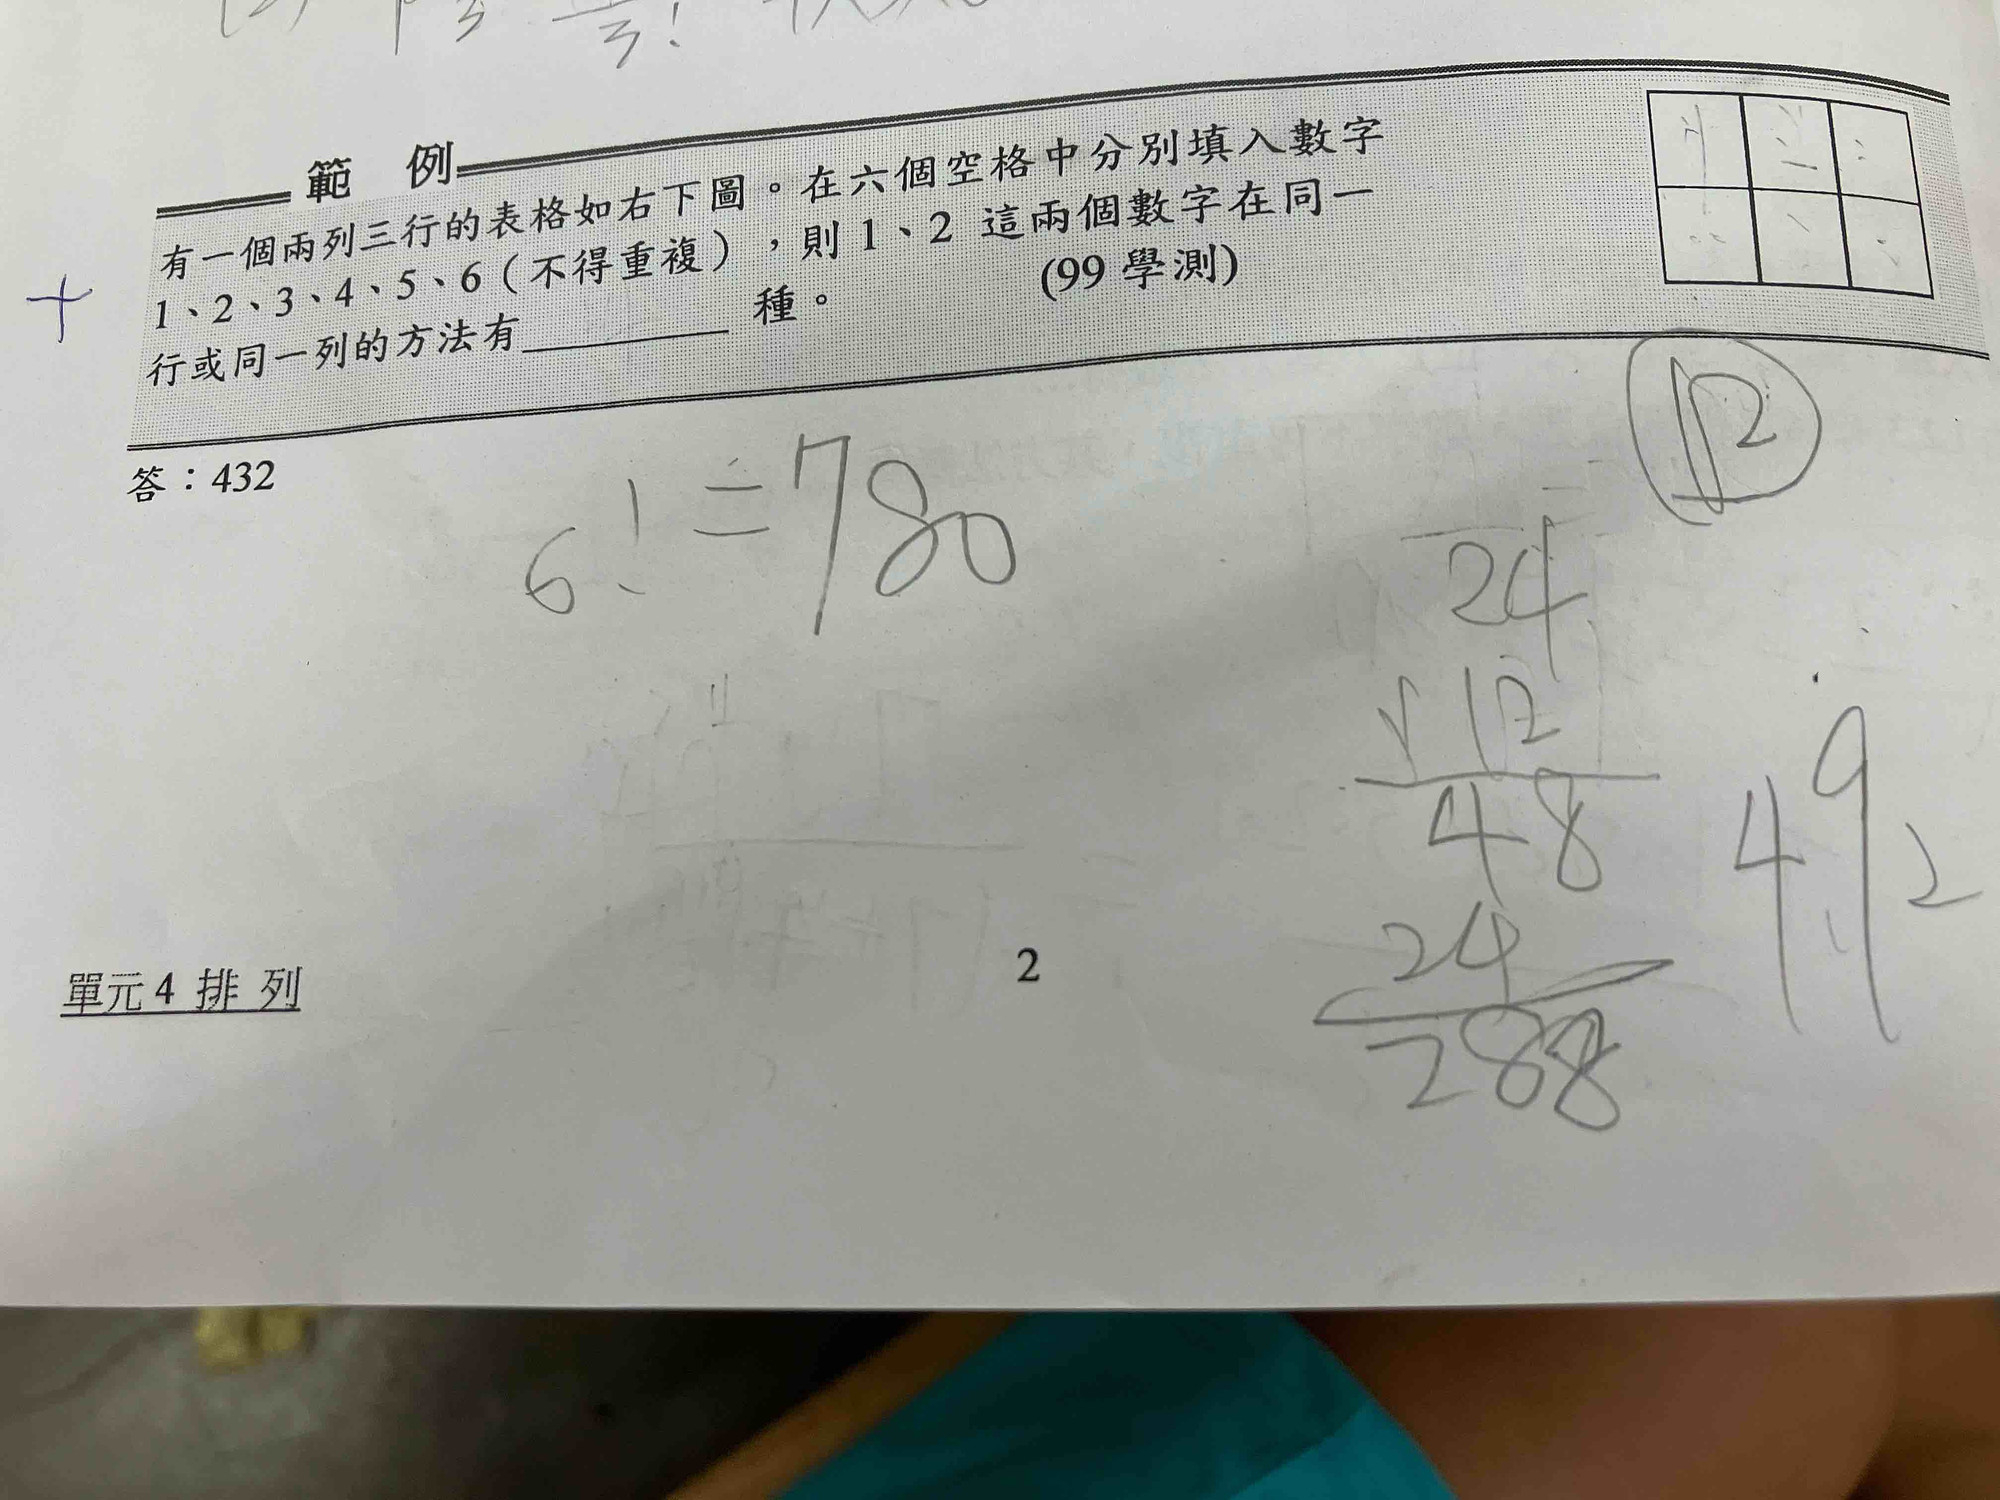 範 例
有一個兩列三行的表格如右下圖。在六個空格中分別填入數字
1、2、3、4、5、6(不得重複),則 1、2 這兩個數字在同一
行或同一列的方法有________種。 (99 學測)
答:432
6! = 780
12
24
12
48
24
288
492
單元4 排 列
2